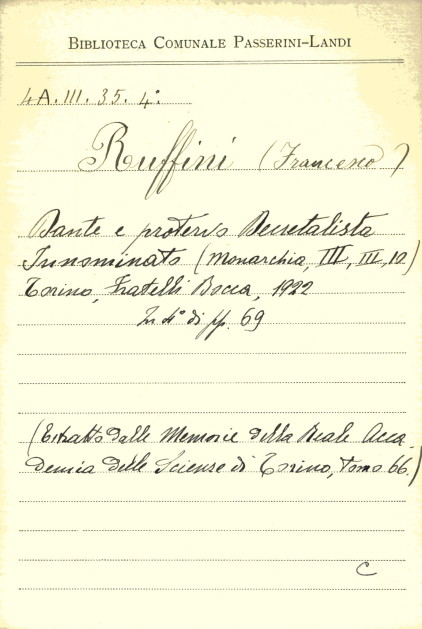 BIBLIOTECA COMUNALE PASSERINI-LANDI
4A.III.35.4°:
Ruffini (Francesco)
Dante e protervo Decretalista
Innominato (Monarchia, III, III, 10)
Torino, Fratelli Bocca, 1922
In 4° di pp. 69
(Estratto dalle Memorie della Reale Acca-
demia delle Scienze di Torino, tomo 66)
C